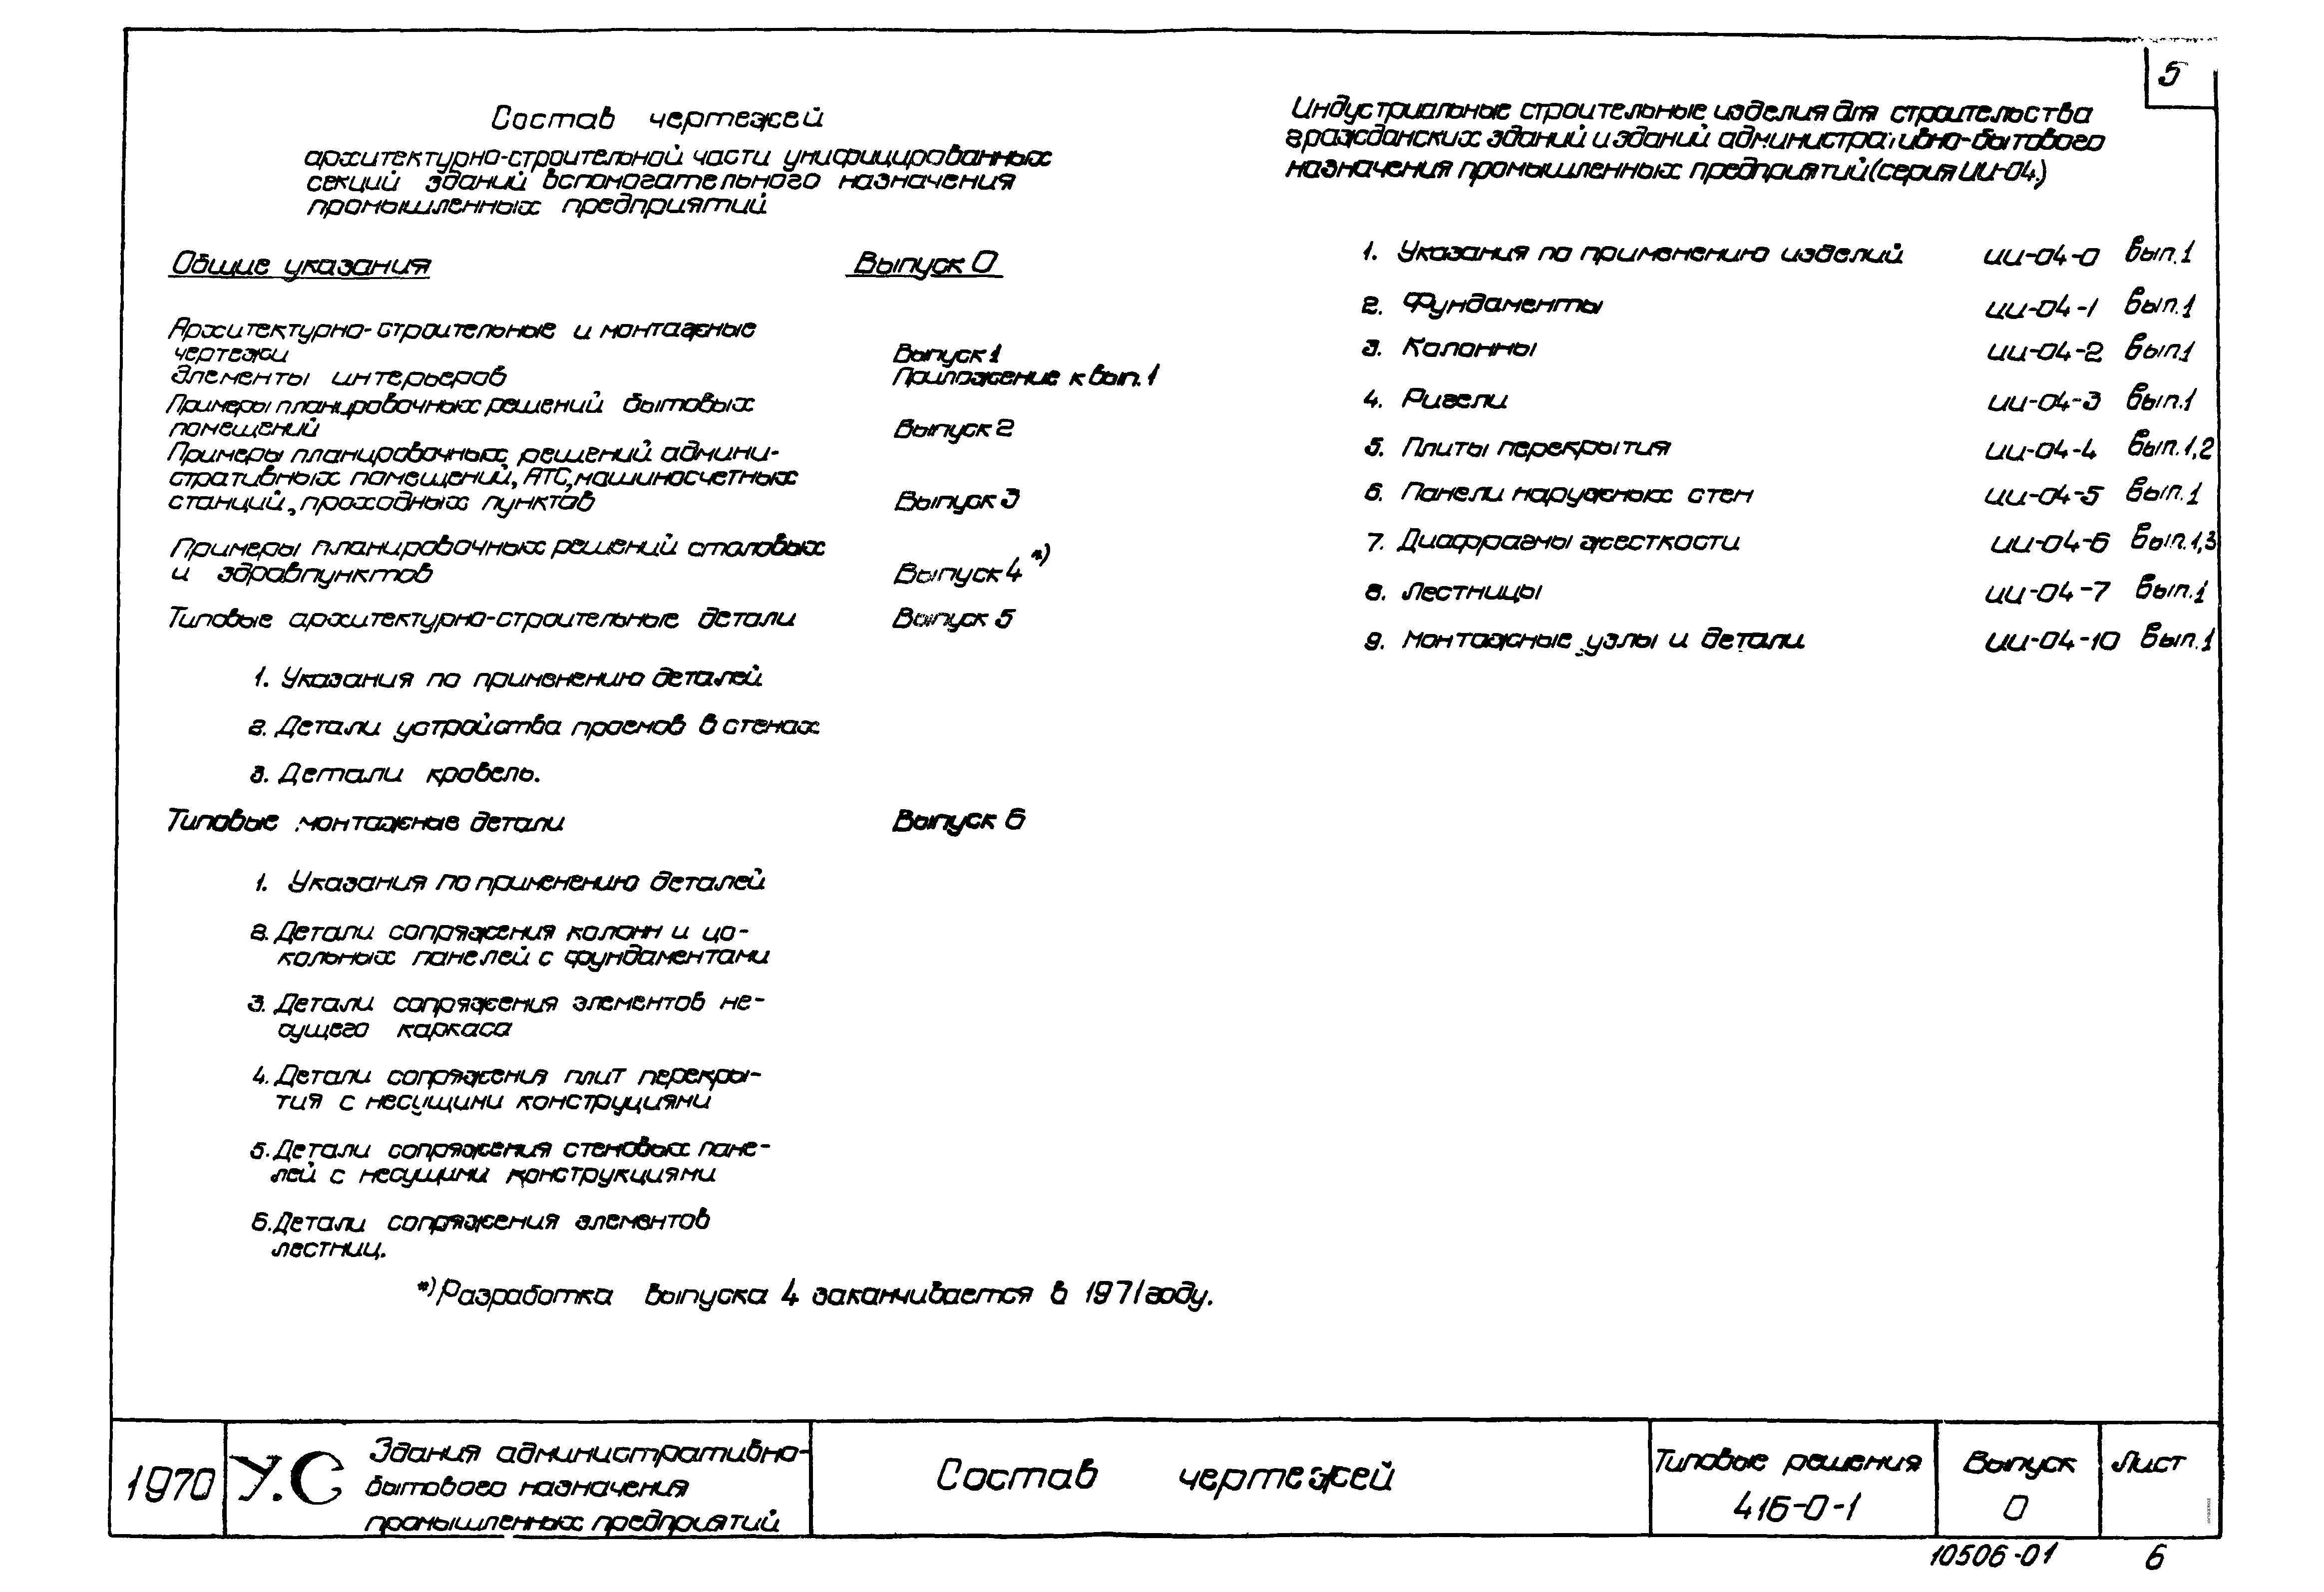 5
Состав чертежей
архитектурно-строительной части унифицированных
секций зданий вспомогательного назначения
промышленных предприятий
Общие указания Выпуск 0
Архитектурно-строительные и монтажные
чертежи Выпуск 1
Элементы интерьеров Приложение к вып. 1
Примеры планировочных решений бытовых
помещений Выпуск 2
Примеры планировочных решений админи-
стративных помещений, АТС, машиносчетных
станций, проходных пунктов Выпуск 3
Примеры планировочных решений столовых
и здравпунктов Выпуск 4 *)
Типовые архитектурно-строительные детали Выпуск 5
1. Указания по применению деталей
2. Детали устройства проемов в стенах
3. Детали кровель.
Типовые монтажные детали Выпуск 6
1. Указания по применению деталей
2. Детали сопряжения колонн и цо-
кольных панелей с фундаментами
3. Детали сопряжения элементов не-
сущего каркаса
4. Детали сопряжения плит перекры-
тия с несущими конструциями
5. Детали сопряжения стеновых пане-
лей с несущими конструкциями
6. Детали сопряжения элементов
лестниц.
*) Разработка выпуска 4 заканчивается в 1971 году.
Индустриальные строительные изделия для строительства
гражданских зданий и зданий административно-бытового
назначения промышленных предприятий (серия ИИ-04.)
1. Указания по применению изделий ИИ-04-0 Вып. 1
2. Фундаменты ИИ-04-1 Вып. 1
3. Колонны ИИ-04-2 Вып. 1
4. Ригели ИИ-04-3 Вып. 1
5. Плиты перекрытия ИИ-04-4 Вып. 1,2
6. Панели наружных стен ИИ-04-5 Вып. 1
7. Диафрагмы жесткости ИИ-04-6 Вып. 1,3
8. Лестницы ИИ-04-7 Вып. 1
9. Монтажные узлы и детали ИИ-04-10 Вып. 1
1970
У.С
Здания административно-
бытового назначения
промышленных предприятий
Состав чертежей
Типовые решения
416-0-1
Выпуск
0
Лист
10506-01 6